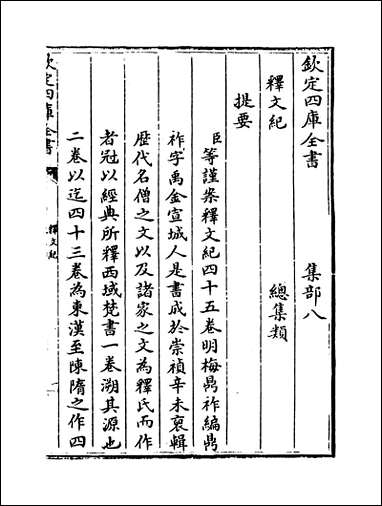 欽定四庫全書　集部八
釋文紀　總集類
提要
臣等謹案釋文紀四十五卷明梅鼎祚編鼎
祚字禹金宣城人是書成於崇禎辛未裒輯
歴代名僧之文以及諸家之文為釋氏而作
者冠以經典所釋西域梵書一卷溯其源也
二卷以迄四十三卷為東漢至陳隋之作四
欽定四庫全書
釋文紀
一